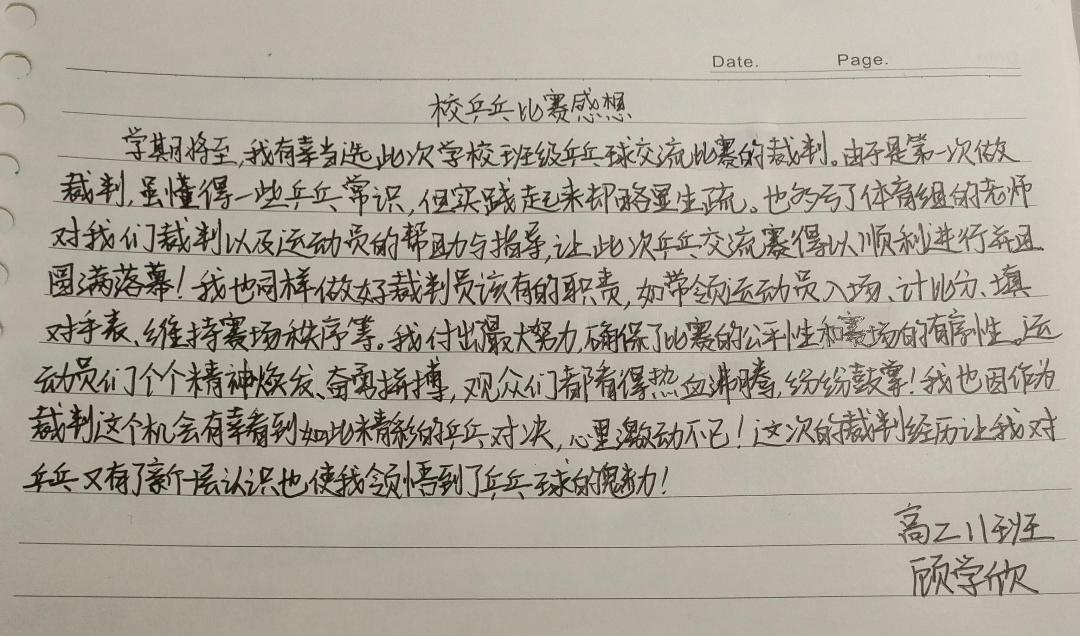 Date. Page.
校乒乓比赛感想
学期将至,我有幸当选此次学校班级乒乓球交流比赛的裁判。由于是第一次做
裁判,虽懂得一些乒乓常识,但实践起来却略显生疏。也多亏了体育组的老师
对我们裁判以及运动员的帮助与指导,让此次乒乓交流赛得以顺利进行并且
圆满落幕!我也同样做好裁判员该有的职责,如带领运动员入场、计比分、填
对手表、维持赛场秩序等。我付出最大努力,确保了比赛的公平性和赛场的有序性。运
动员们个个精神焕发、奋勇拼搏,观众们都看得热血沸腾,纷纷鼓掌!我也因作为
裁判这个机会有幸看到如此精彩的乒乓对决,心里激动不已!这次的裁判经历让我对
乒乓又有了新一层认识也使我领悟到了乒乓球的魅力!
高二11班
顾学欣